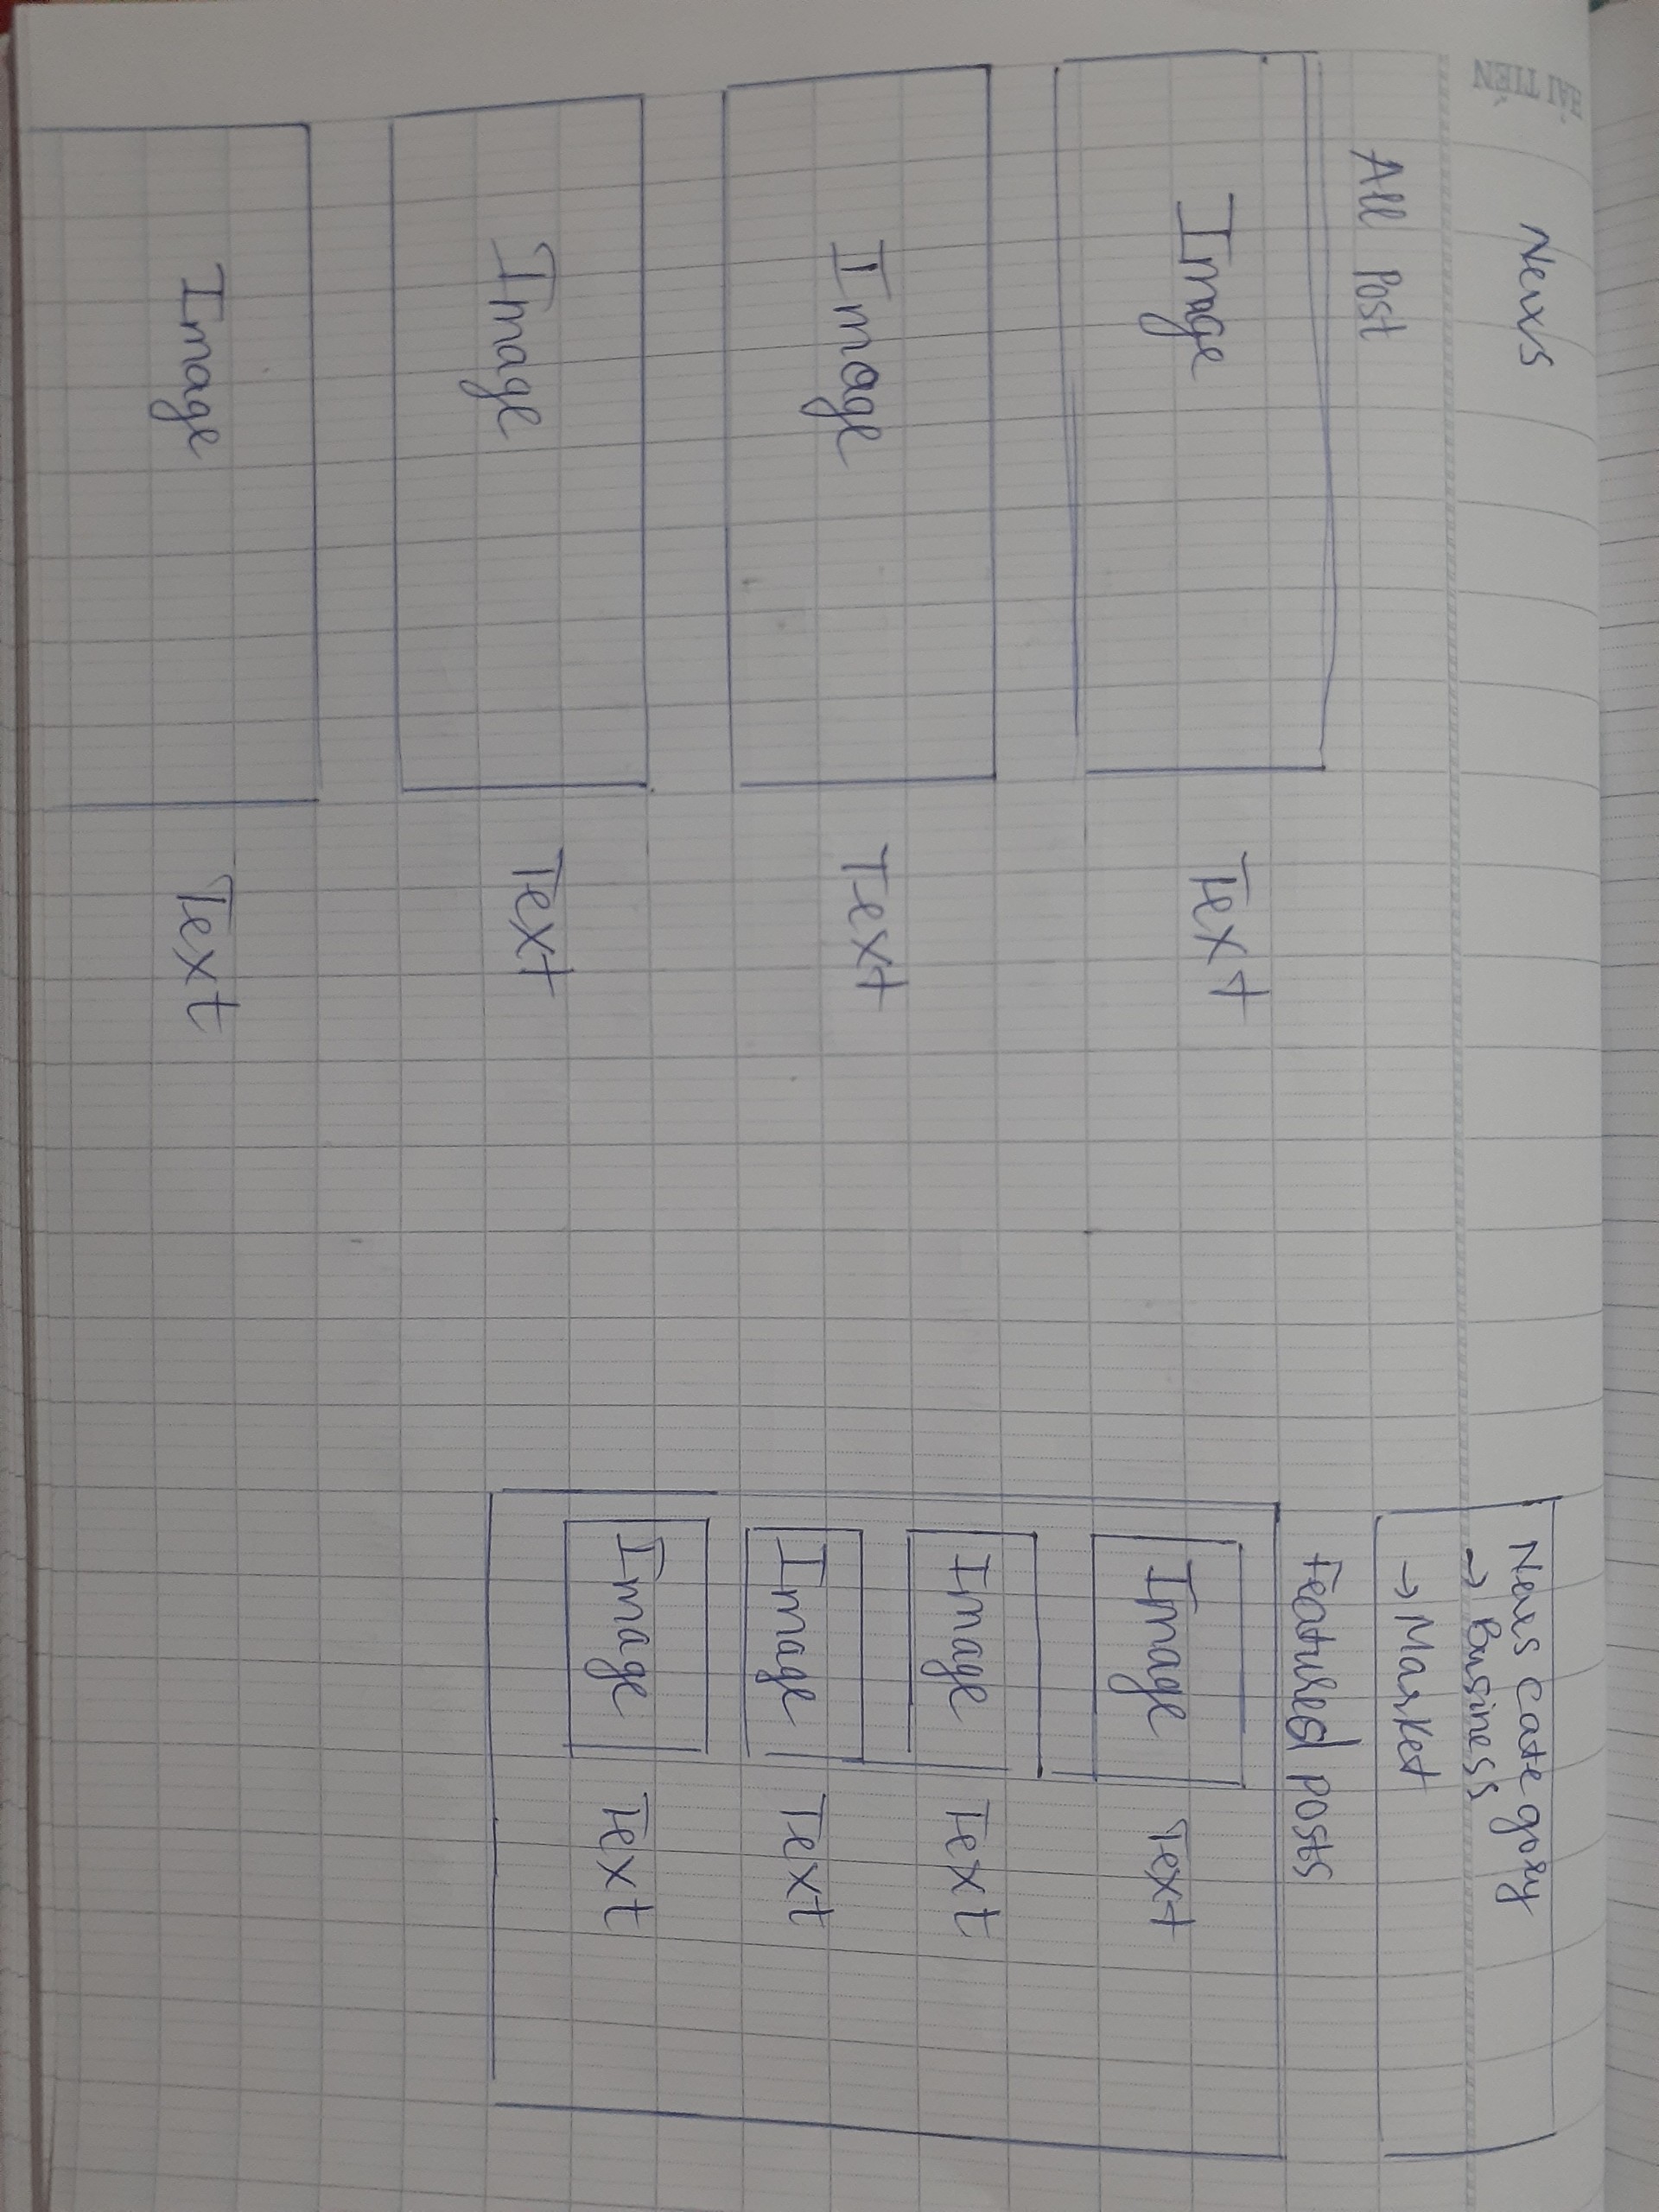 HẢI TIẾN
News
All Post
Image
Text
Image
Text
Image
Text
Image
Text
News category
→ Business
→ Market
Featured posts
Image
Text
Image
Text
Image
Text
Image
Text